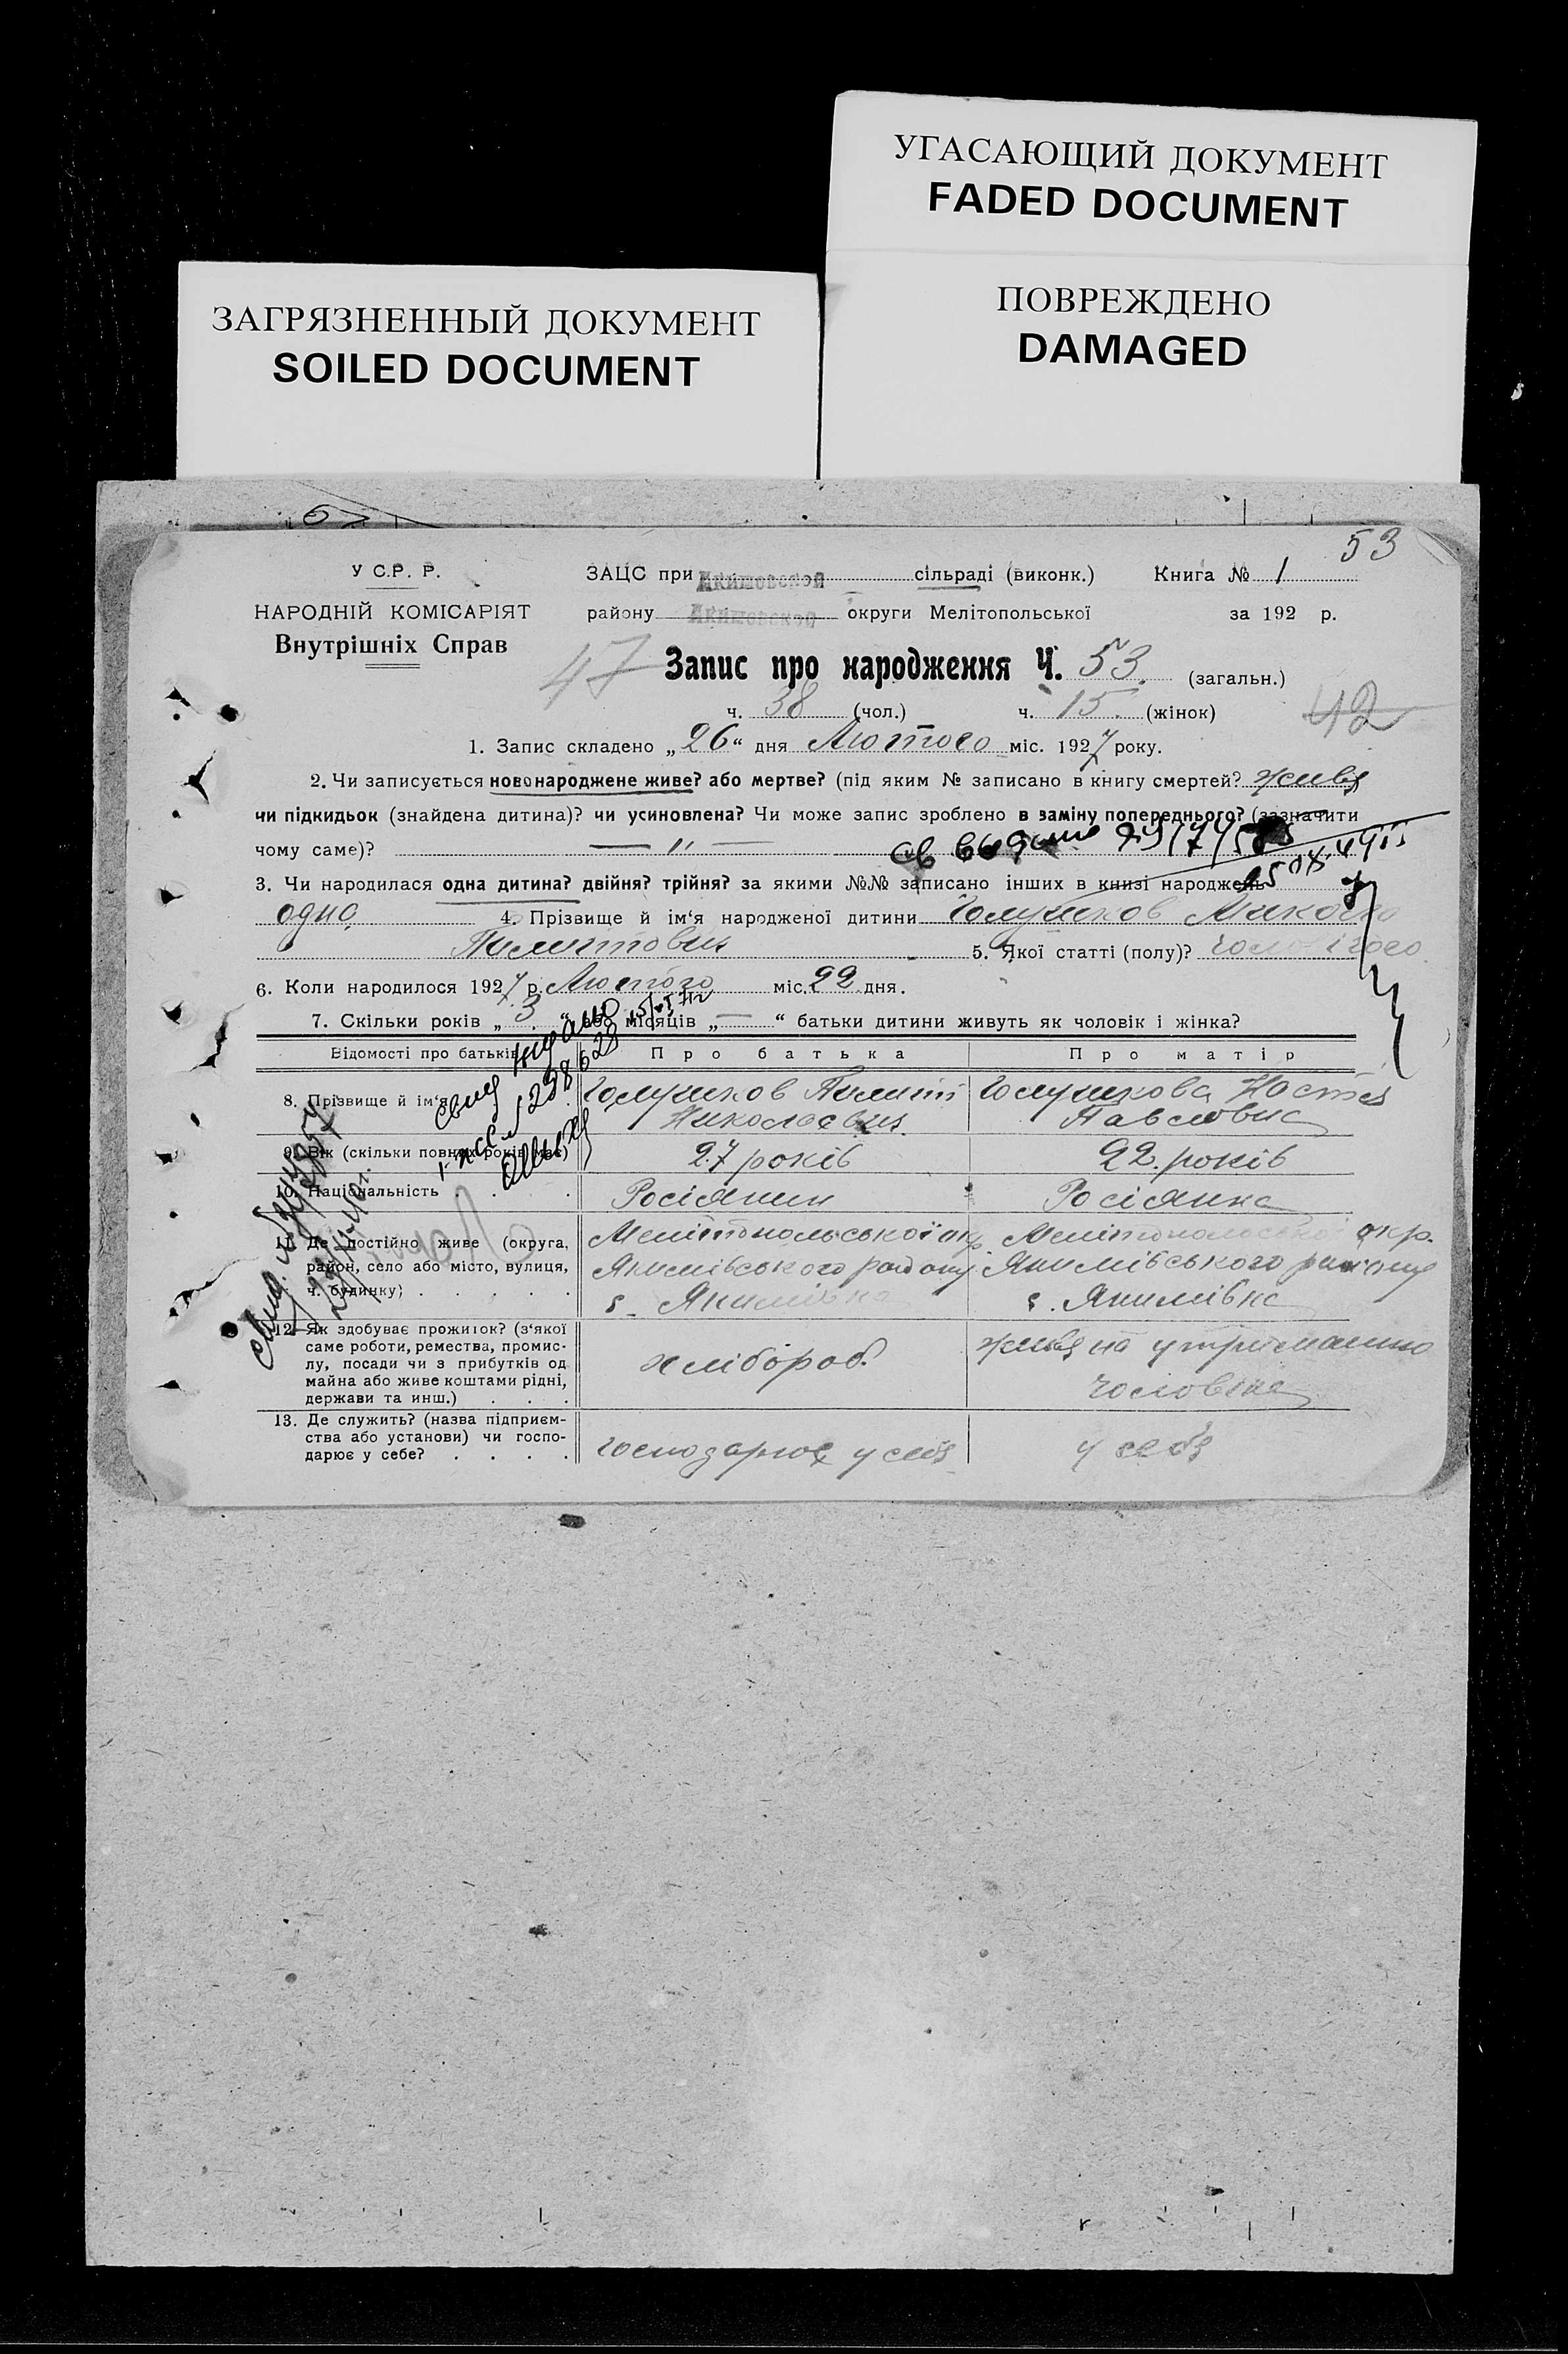 УГАСАЮЩИЙ ДОКУМЕНТ
FADED DOCUMENT
ПОВРЕЖДЕНО
DAMAGED
ЗАГРЯЗНЕННЫЙ ДОКУМЕНТ
SOILED DOCUMENT
53
У С.Р. Р.
НАРОДНІЙ КОМІСАРІЯТ
Внутрішніх Справ
ЗАЦС при Акимовской сільраді (виконк.) Книга № 1
району Акимовской округи Мелітопольської за 192 р.
47 Запис про народження Ч. 53. (загальн.)
ч. 38 (чол.) ч. 15. (жінок) 42
1. Запис складено „26“ дня Лютого міс. 1927 року.
2. Чи записується новонароджене живе? або мертве? (під яким № записано в книгу смертей? живе
чи підкидьок (знайдена дитина)? чи усиновлена? Чи може запис зроблено в заміну попереднього? (зазначити
чому саме)? — " —
3. Чи народилася одна дитина? двійня? трійня? за якими №№ записано інших в книзі народжень
одно, 4. Прізвище й ім‘я народженої дитини Микола
5. Якої статті (полу)? чоловічого
6. Коли народилося 1927 р. Лютого міс. 22 дня.
7. Скільки років „3“ або місяців „—“ батьки дитини живуть як чоловік і жінка?
Відомості про батьків Про батька Про матір
8. Прізвище й ім‘я
Николаевич Павловна
9. Вік (скільки повних років має) 27 років 22. років
10. Національність . . . Росіянин Росіянка
11. Де постійно живе (округа, Мелітопольської окр. Мелітопольської окр.
район, село або місто, вулиця, Якимівського району Якимівського району
ч. будинку) . . . . . с. Якимівка с. Якимівка
12. Як здобуває прожиток? (з‘якої
саме роботи, ремества, промис-
лу, посади чи з прибутків од
майна або живе коштами рідні,
держави та инш.) . . .
хлібороб. живе на утриманню
чоловіка
13. Де служить? (назва підприєм-
ства або установи) чи госпо-
дарює у себе? . . . .
господарює у себе у себе